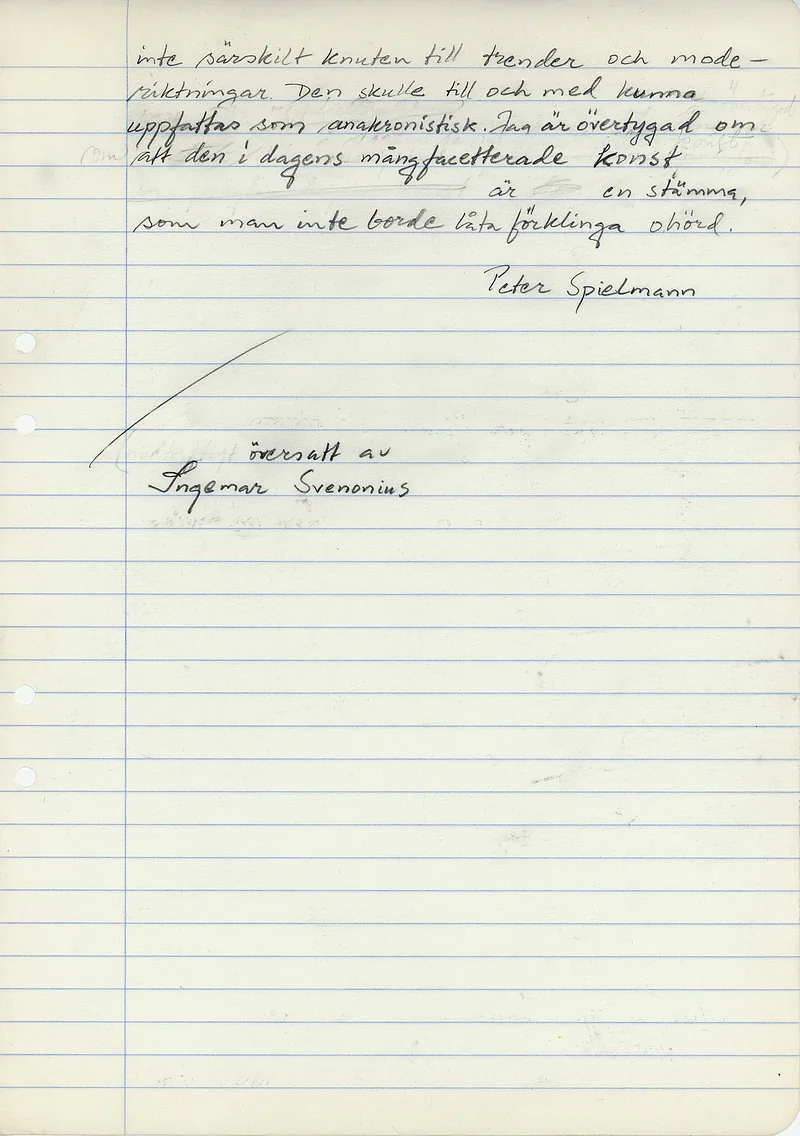 inte särskilt knuten till trender och mode-
riktningar. Den skulle till och med kunna
uppfattas som anakronistisk. Jag är övertygad om
att den i dagens mångfacetterade konst
är en stämma,
som man inte borde låta förklinga ohörd.
Peter Spielmann
översatt av
Ingemar Svenonius